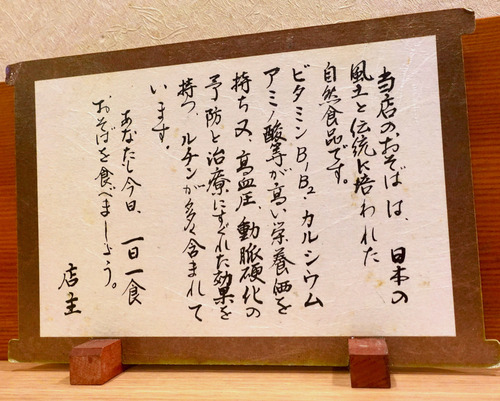 当店のおそばは、日本の
風土と伝統に培われた
自然食品です。
ビタミンB₁B₂・カルシウム
アミノ酸等が高い栄養価を
持ち又、高血圧、動脈硬化の
予防と治療にすぐれた効果を
持つ、ルチンが多く含まれて
います。
あなたも今日、一日一食
おそばを食べましょう。
店主